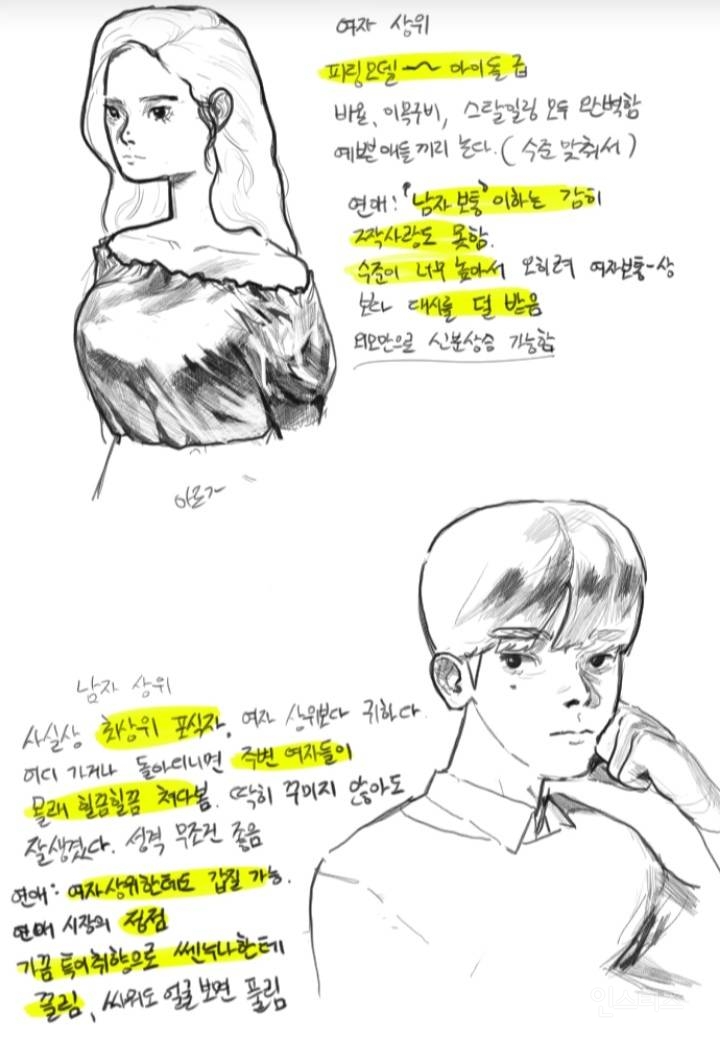 여자 상위
피팅모델 ~ 아이돌급
비율, 이목구비, 스타일링 모두 완벽함
예쁜 애들끼리 논다. (수준 맞춰서)
연애: "남자보통"이하는 감히
짝사랑도 못함.
수준이 너무 높아서 오히려 여자보통-상
보다 대시를 덜 받음
외모만으로 신분상승 가능함
남자 상위
사실상 최상위 포식자, 여자 상위보다 귀하다.
어디 가거나 돌아다니면 주변 여자들이
몰래 힐끔힐끔 쳐다봄. 딱히 꾸미지 않아도
잘생겼다. 성격 무조건 좋음
연애: 여자상위한테도 갑질 가능.
연애 시장의 정점
가끔 특이취향으로 쎈누나한테
끌림, 싸워도 얼굴보면 풀림
인스티즈